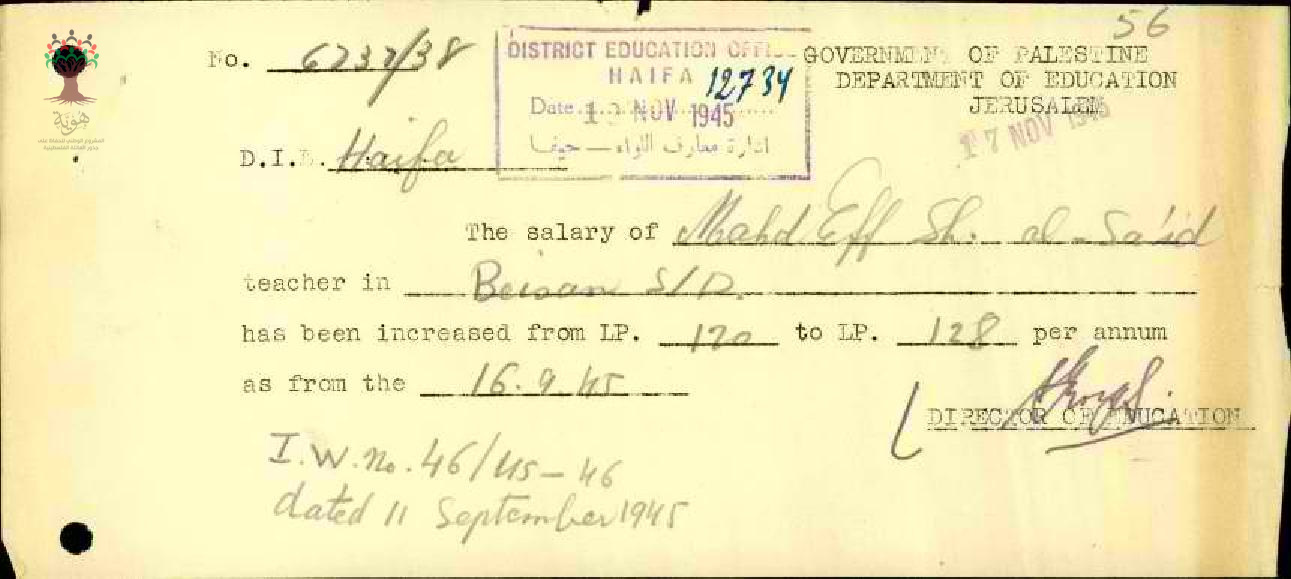 56
No. 6737/38
DISTRICT EDUCATION OFFICE
HAIFA 12734
Date 19 NOV 1945
ادارة معارف اللواء — حيفا
GOVERNMENT OF PALESTINE
DEPARTMENT OF EDUCATION
JERUSALEM
17 NOV 1945
D.I.E. Haifa
The salary of Mahd Eff Sh. al-Sa'id
teacher in Beisan S/D.
has been increased from LP. 120 to LP. 128 per annum
as from the 16.9.45
DIRECTOR OF EDUCATION
I.W.No. 46/45-46
dated 11 September 1945
هوية